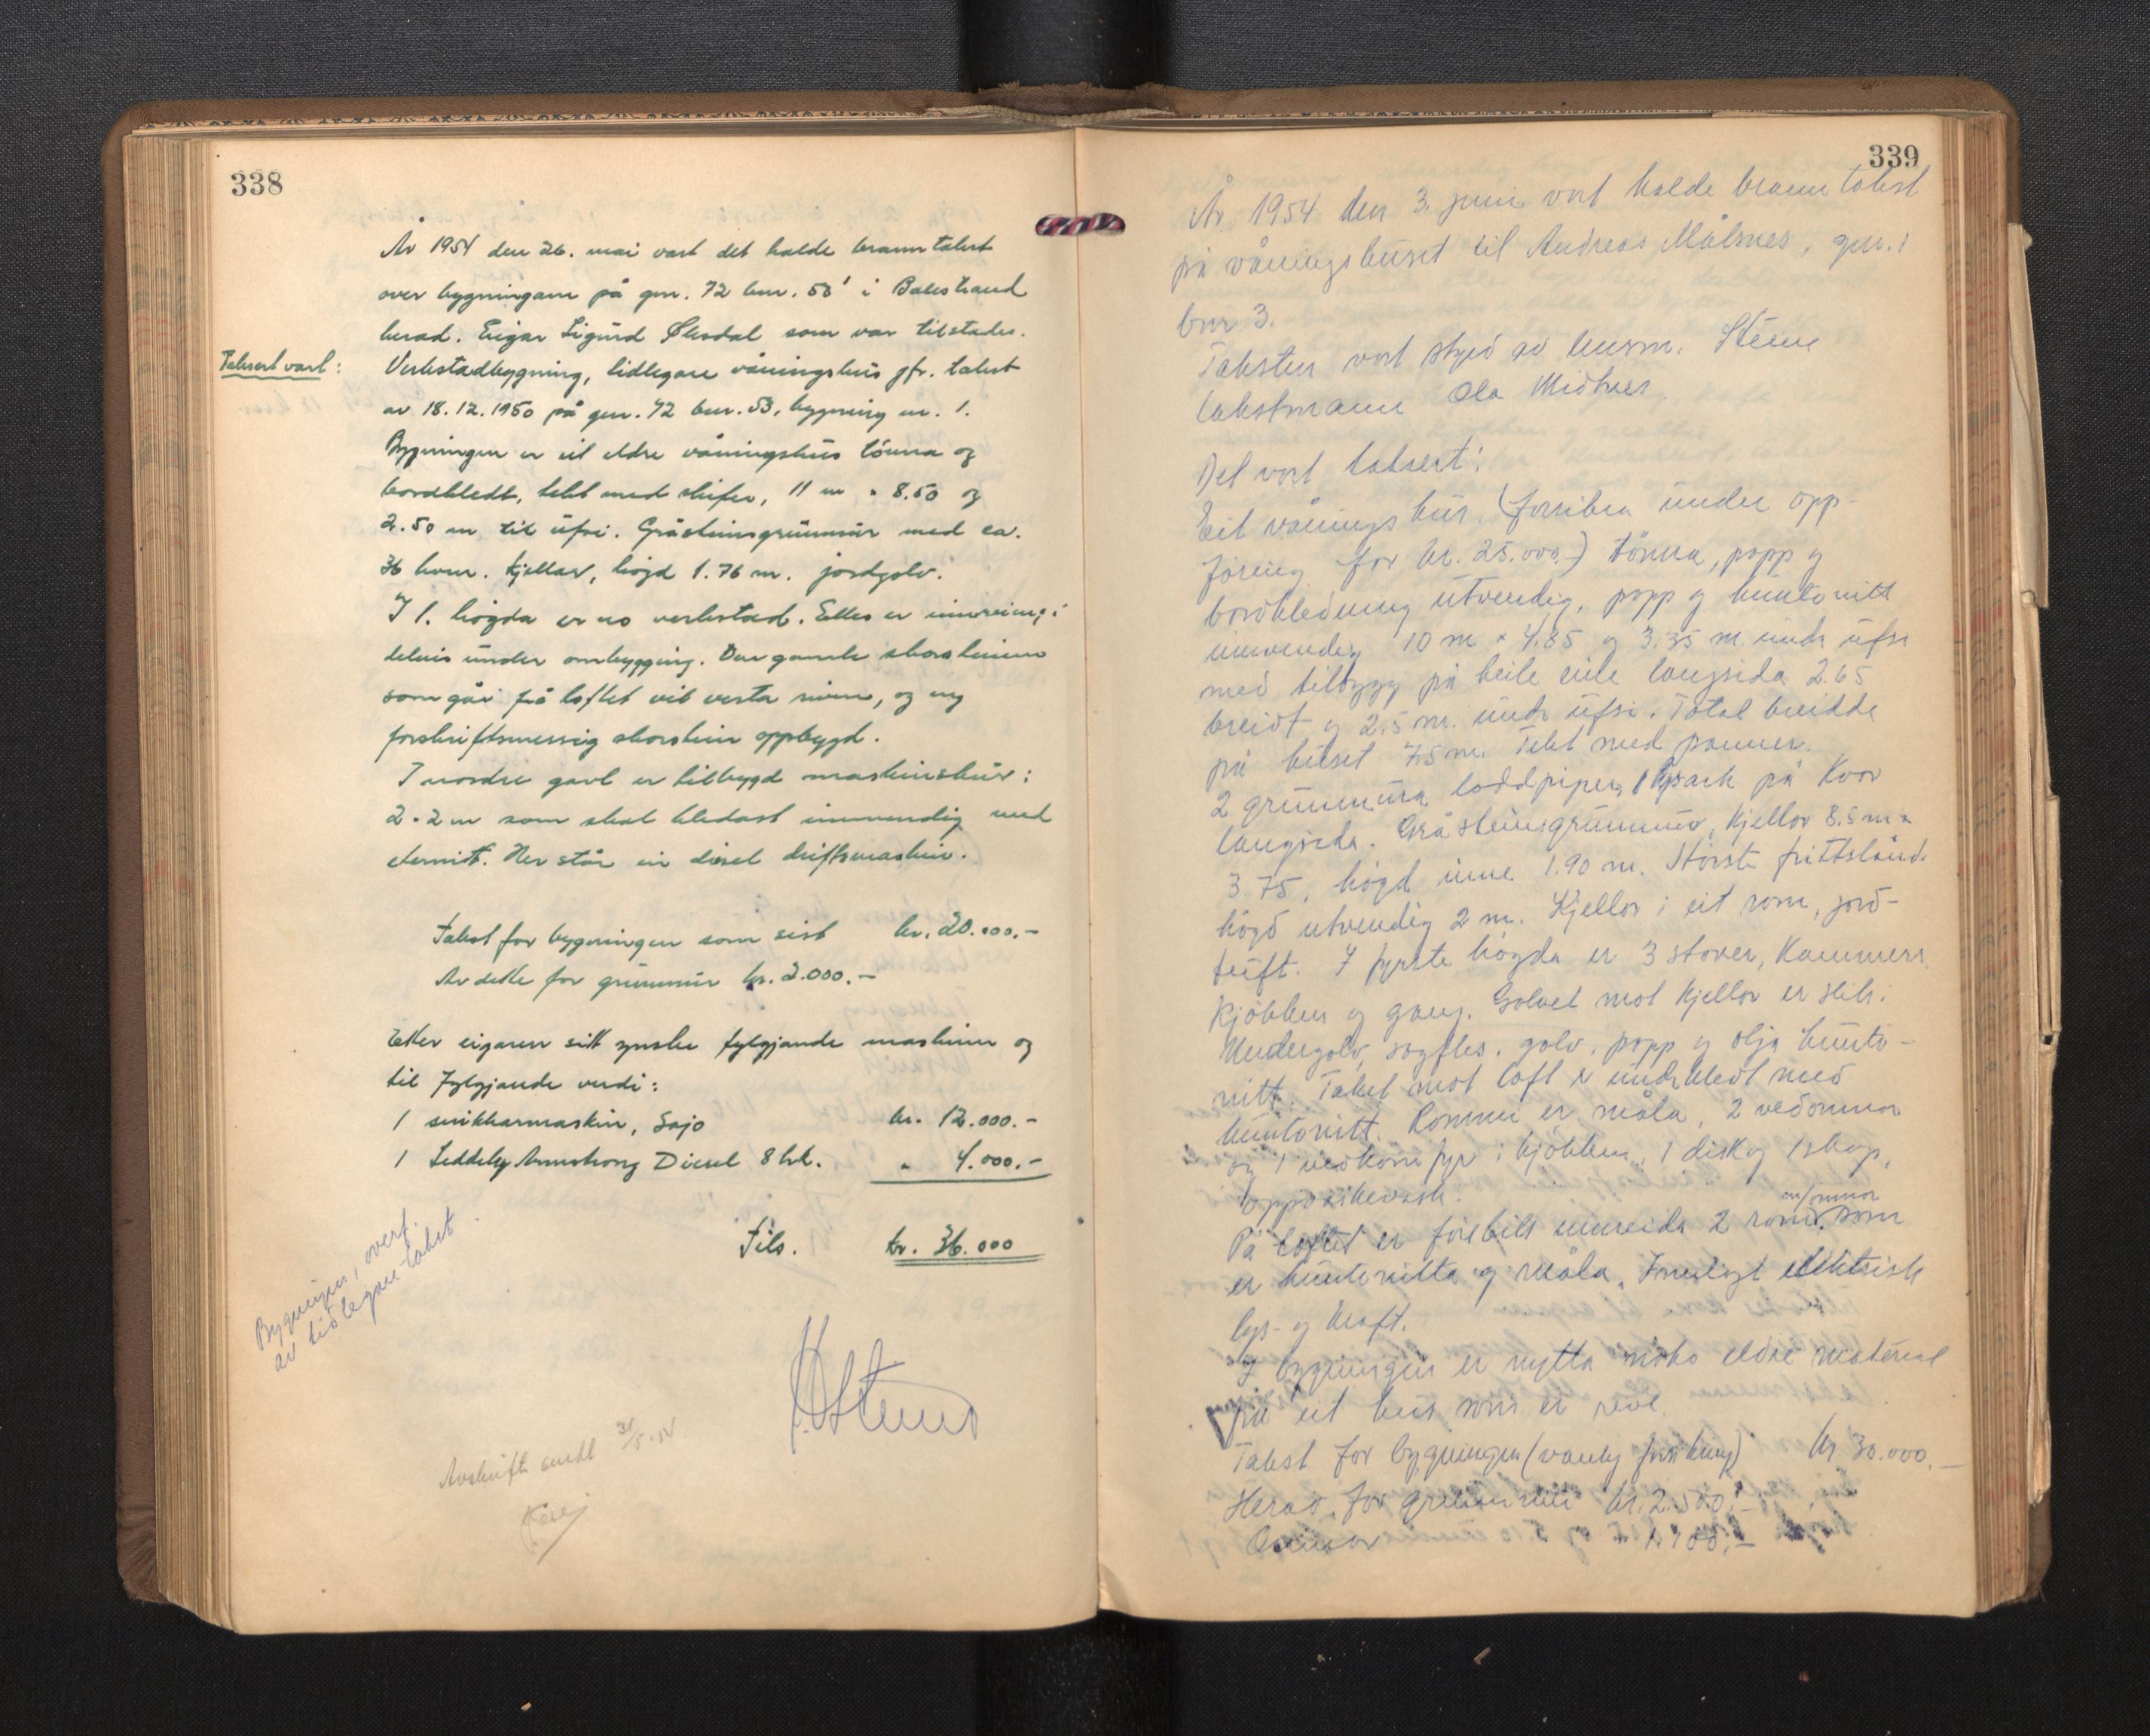 338
År 1954 den 26. mai vart det halde branntakst
over bygningane på gnr. 72 bnr. 53 i Balestrand
herad. Eigar Sigurd som var tilstades.
Taksert vart:
Verkstadbygning, tidlegare våningshus jfr. takst
av 18.12.1950 på gnr. 72 bnr. 53, bygning nr. 1.
Bygningen er eit eldre våningshus tømra og
bordkledt, tekt med skifer, 11 m × 8.50 og
2.50 m til ufsi. Gråsteinsgrunnmur med ca.
36 kvm. kjellar, høgd 1.76 m. jordgolv.
I 1. høgda er no verkstad. Elles er innreiinga
delvis under ombygging. Den gamle skorsteinen
som går frå loftet vil verta riven, og ny
forskriftsmessig skorstein oppbygd.
I nordre gavl er tilbygd maskinskur:
2 × 2 m som skal kledast innvendig med
eternitt. Her står ein diesel driftsmaskin.
Takst for bygningen som sist kr. 20.000.-
Av dette for grunnmur kr. 2.000.-
Etter eigaren sitt ynske fylgjande maskiner og
til fylgjande verdi:
1 snikkarmaskin, Sajo kr. 12.000.-
1 Armstrong Diesel 8 hk. " 4.000.-
Tils. kr. 36.000
Bygningen, overf.
av tidlegare takst
Avskrift sendt 31/5-54
339
År 1954 den 3. juni vart halde branntakst
på våningshuset til Andreas Målsnes, gnr. 1
bnr 3.
Taksten vart styrd av lensm. Steine
takstmann Ola Midtnes
Det vart taksert:
Eit våningshus (forsikra under opp-
føring for kr. 25.000) tømra, papp og
bordkledning utvendig, papp og huntonitt
innvendig 10 m × 4.85 og 3.35 m. under ufsi
med tilbygg på heile eine langsida 2.65
breidt og 2.5 m. under ufsi. Total breidde
på huset 7.5 m. Tekt med panner.
2 grunnmura loddpiper, 1 ark på kvar
langside. Gråsteinsgrunnmur, kjellar 8.5 m ×
3.75, høgd inne 1.90 m. Største frittståande
høgd utvendig 2 m. Kjellar i eit rom, jord-
tuft. I fyrste høgda er 3 stover, kammers
kjøkken og gang. Golvet mot kjellar er stik.
Undergolv, sagflis, golv, papp og olja hunto-
nitt. Taket mot loft er underkledt med
huntonitt. Romma er måla, 2 vedomnar
og 1 vedkomfyr i kjøkken, 1 disk og 1 skap,
oppvaskevask.
På loftet er førebils innreida 2 rom m/omnar som
er huntonitta og måla. Innlagt elektrisk
lys- og kraft.
I bygningen er nytta noko eldre material
frå eit hus som er rive.
Takst for bygningen (vanleg forsikring) kr. 30.000.-
Herav for grunnmur kr. 2.500.-
Omnar